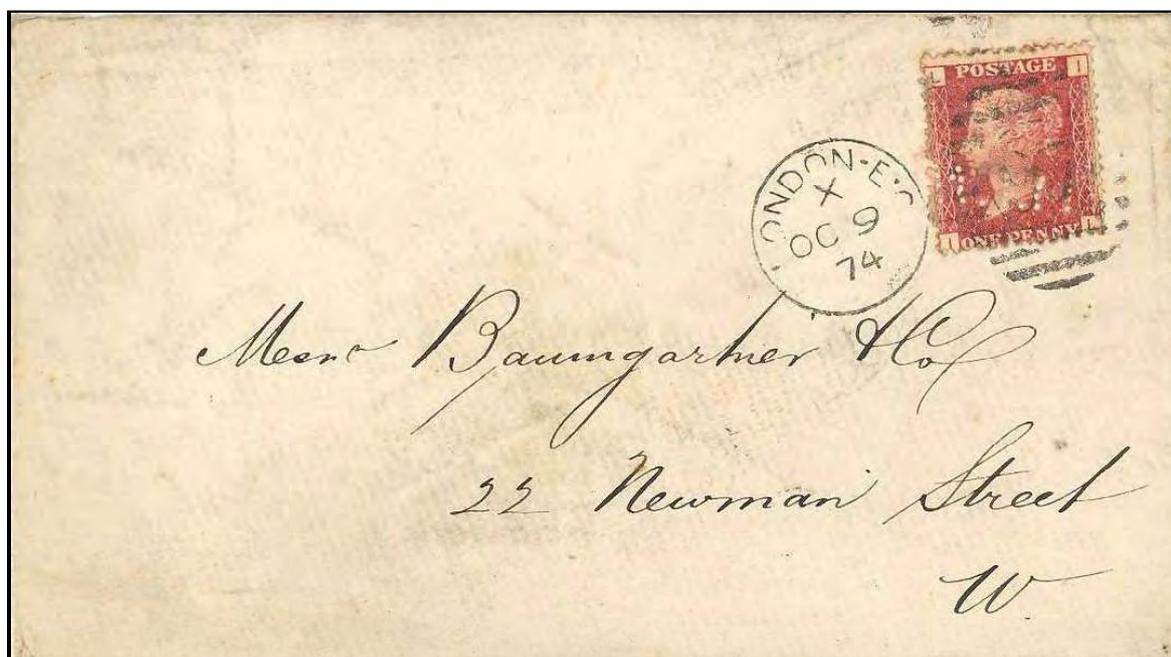 L POSTAGE I
I ONE PENNY L
LONDON·E·C
X
OC 9
74
Messrs Baumgartner & Co
22 Newman Street
W.